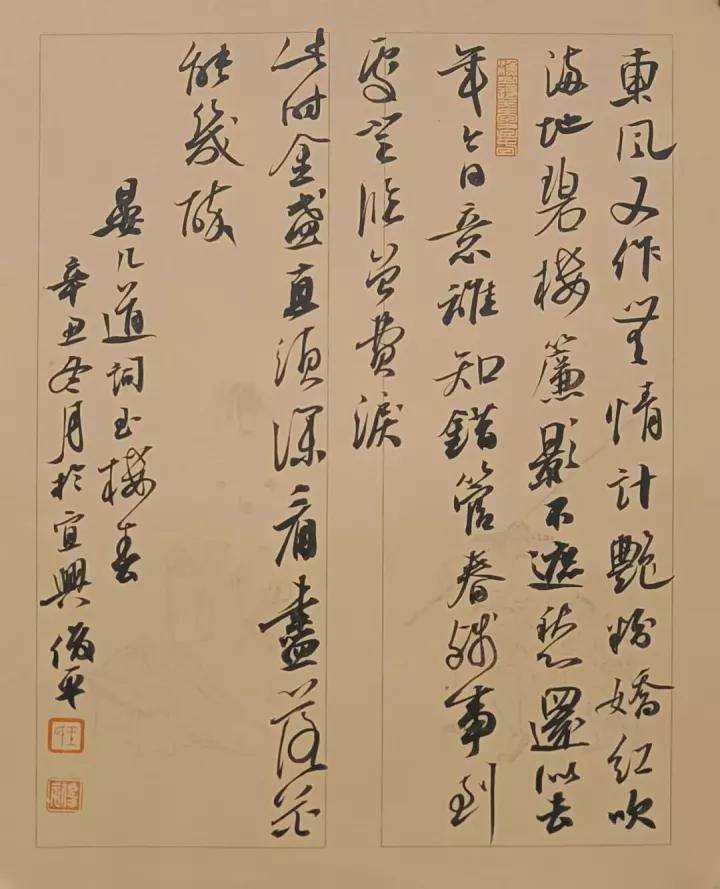 東風又作無情計艷粉嬌紅吹
滿地碧樓簾影不遮愁還似去
年今日意誰知錯管春殘事到
處登臨曾費淚
此時金盞直須深看盡落花
能幾醉
晏几道詞玉樓春
辛丑冬月於宜興俊平